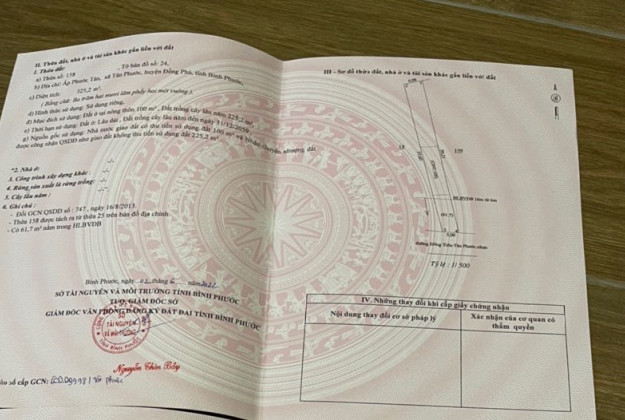 II. Thửa đất, nhà ở và tài sản khác gắn liền với đất
1. Thửa đất:
a) Thửa số: 158 , Tờ bản đồ số: 24,
b) Địa chỉ: Ấp Phước Tân, xã Tân Phước, huyện Đồng Phú, tỉnh Bình Phước,
c) Diện tích: 325,2 m²,
( Bằng chữ: Ba trăm hai mươi lăm phẩy hai mét vuông ),
d) Hình thức sử dụng: Sử dụng riêng,
đ) Mục đích sử dụng: Đất ở tại nông thôn 100 m², Đất trồng cây lâu năm 225,2 m²,
e) Thời hạn sử dụng: Đất ở: Lâu dài , Đất trồng cây lâu năm đến ngày 31/12/2059,
g) Nguồn gốc sử dụng: Nhà nước giao đất có thu tiền sử dụng đất 100 m² và nhận chuyển nhượng đất
được công nhận QSDĐ như giao đất không thu tiền sử dụng đất 225,2 m².
*2. Nhà ở: -/-
3. Công trình xây dựng khác: -/-
4. Rừng sản xuất là rừng trồng: -/-
5. Cây lâu năm: -/-
6. Ghi chú:
- Đổi GCN QSDĐ số : 747, ngày 16/8/2013.
- Thửa 158 được tách ra từ thửa 25 trên bản đồ địa chính
- Có 61,7 m² nằm trong HLBVĐB
Bình Phước, ngày
SỞ TÀI NGUYÊN VÀ MÔI TRƯỜNG TỈNH BÌNH PHƯỚC
TUQ. GIÁM ĐỐC SỞ
GIÁM ĐỐC VĂN PHÒNG ĐĂNG KÝ ĐẤT ĐAI TỈNH BÌNH PHƯỚC
Nguyễn Thìn Bảy
số cấp GCN:
III - Sơ đồ thửa đất, nhà ở và tài sản khác gắn liền với đất
HLBVĐB
Tỷ lệ : 1/ 500
IV. Những thay đổi khi cấp giấy chứng nhận
Nội dung thay đổi cơ sở pháp lý
Xác nhận của cơ quan có
thẩm quyền